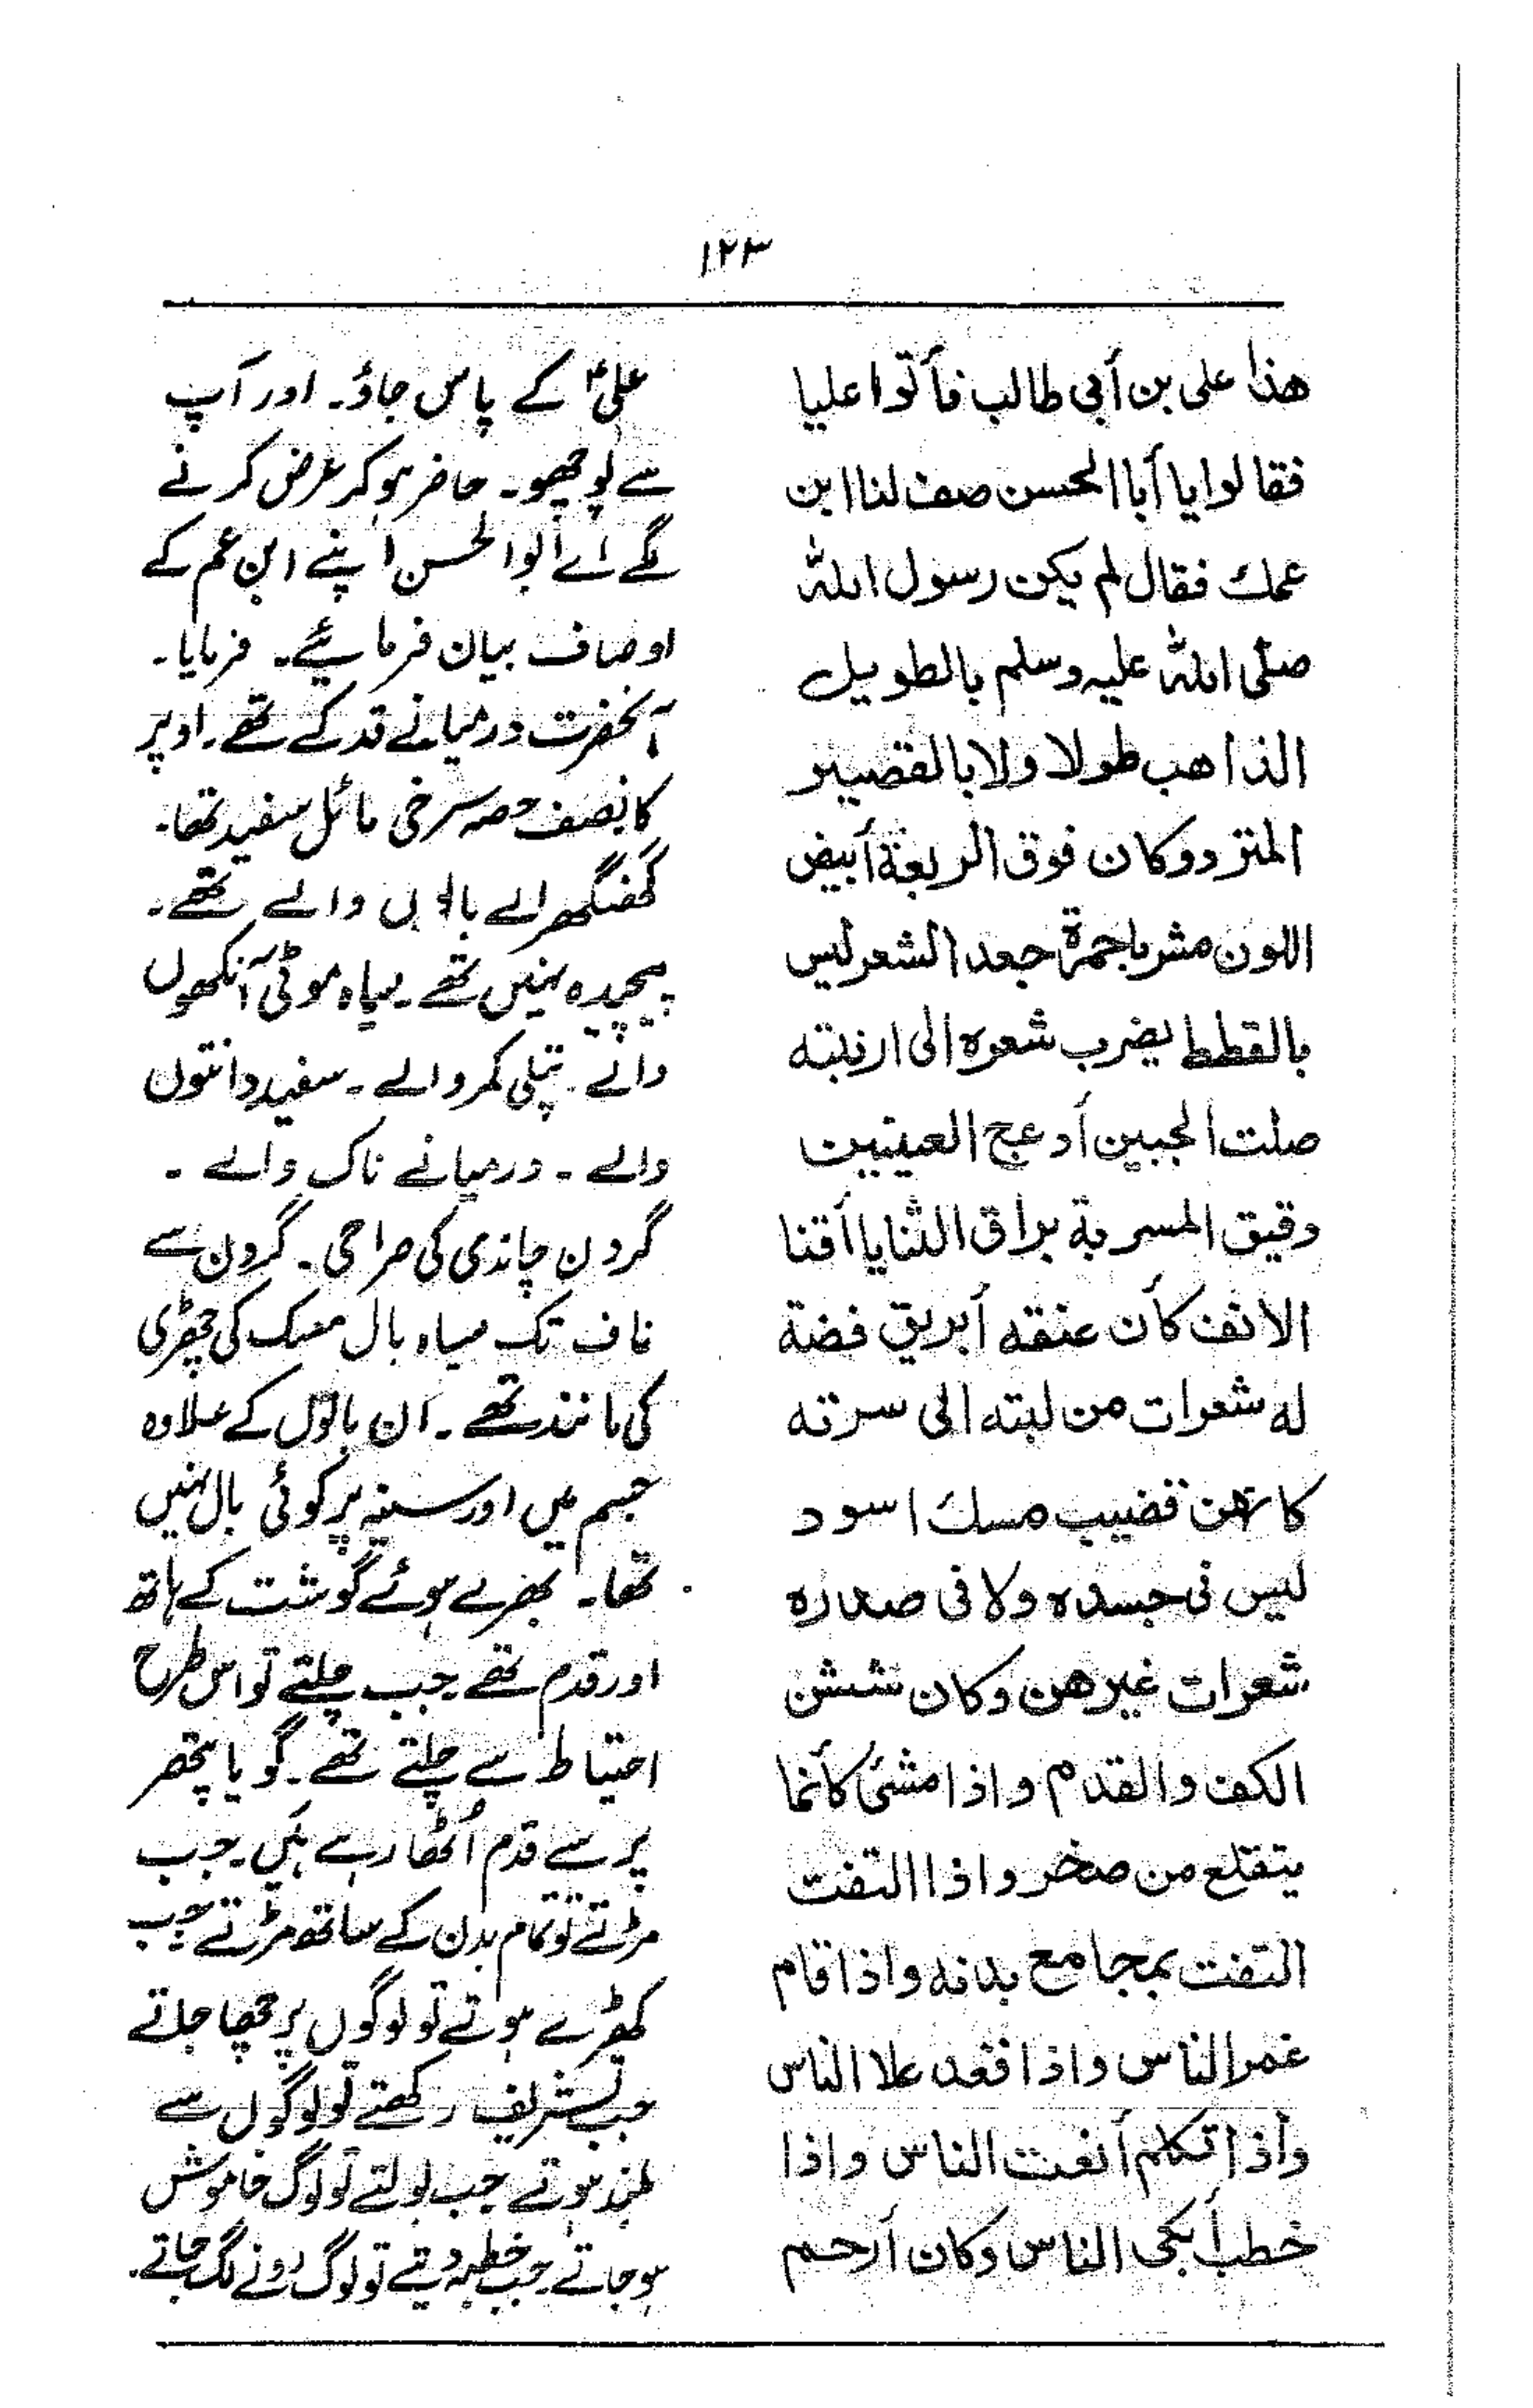 ۱۲۳
هذا على بن أبى طالب فأتوا عليا
فقالوا يا أبا الحسن صف لنا ابن
عمك فقال لم يكن رسول الله
صلى الله عليه وسلم بالطويل
الذاهب طولا ولا بالقصير
المتردد وكان فوق الربعة أبيض
اللون مشربا حمرة جعد الشعر ليس
بالقطط يضرب شعره الى ارنبته
صلت الجبين أدعج العينين
دقيق المسربة براق الثنايا أقنا
الانف كأن عنقه أبريق فضة
له شعرات من لبته الى سرته
كانهن قضيب مسك اسود
ليس فى جسده ولا فى صدره
شعرات غيرهن وكان شثن
الكف والقدم واذا مشئ كأنما
يتقلع من صخر واذا التفت
التفت بمجامع بدنه واذا قام
غمر الناس واذا قعد علا الناس
وأذا تكلم أنصت الناس واذا
خطب أبكى الناس وكان أرحم
علیؑ کے پاس جاؤ۔ اور آپ
سے پوچھو۔ حاضر ہو کر عرض کرنے
لگے اے ابوالحسن اپنے ابن عم کے
اوصاف بیان فرمائیے۔ فرمایا۔
آنحضرت درمیانے قد کے تھے۔ اوپر
کا نصف حصہ سرخی مائل سفید تھا۔
گھنگھرالے بالوں والے تھے۔
پیچیدہ نہیں تھے۔ سیاہ موٹی آنکھوں
والے۔ پتلی کمر والے۔ سفید دانتوں
والے۔ درمیانے ناک والے۔
گردن چاندی کی صراحی۔ گردن سے
ناف تک سیاہ بال مسک کی چھڑی
کی مانند تھے۔ ان بالوں کے علاوہ
جسم میں اور سینہ پر کوئی بال نہیں
تھا۔ بھرے ہوئے گوشت کے ہاتھ
اور قدم تھے جب چلتے تو اس طرح
احتیاط سے چلتے تھے۔ گویا پتھر
پر سے قدم اُٹھا رہے ہیں۔ جب
مڑتے تو تمام بدن کے ساتھ مڑتے جب
کھڑے ہوتے تو لوگوں پر چھا جاتے
جب تشریف رکھتے تو لوگوں سے
بلند ہوتے جب بولتے تو لوگ خاموش
ہو جاتے۔ جب خطبہ دیتے تو لوگ رونے لگ جاتے۔